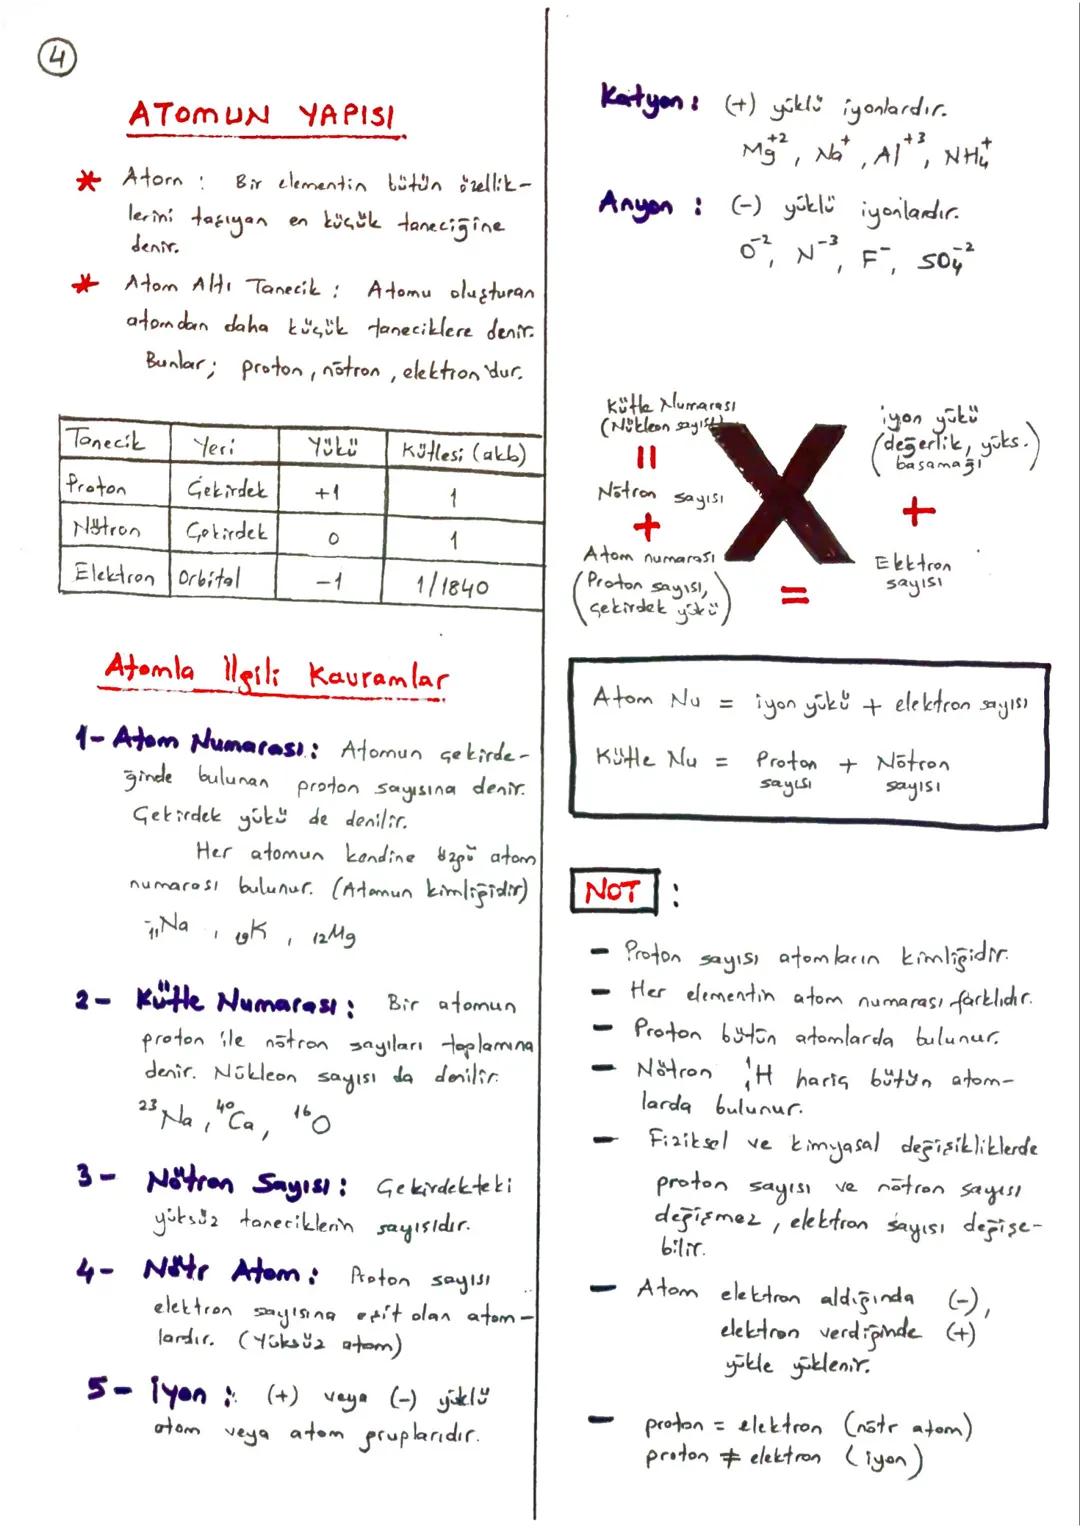 4
ATOMUN YAPISI
* Atom : Bir elementin bütün özellik-
lerini taşıyan en küçük taneciğine
denir.
* Atom Altı Tanecik : Atomu oluşturan
atomdan daha küçük taneciklere denir.
Bunlar; proton, nötron, elektron'dur.
Tanecik Yeri Yükü Kütlesi (akb)
Proton Çekirdek +1 1
Nötron Çekirdek 0 1
Elektron Orbital -1 1/1840
Atomla İlgili Kavramlar
1- Atom Numarası: Atomun çekirde-
ğinde bulunan proton sayısına denir.
Çekirdek yükü de denilir.
Her atomun kendine özgü atom
numarası bulunur. (Atomun kimliğidir)
₁₁Na, ₁₉K, ₁₂Mg
2- Kütle Numarası: Bir atomun
proton ile nötron sayıları toplamına
denir. Nükleon sayısı da denilir.
²³Na, ⁴⁰Ca, ¹⁶O
3- Nötron Sayısı: Çekirdekteki
yüksüz taneciklerin sayısıdır.
4- Nötr Atom: Proton sayısı
elektron sayısına eşit olan atom-
lardır. (Yüksüz atom)
5- İyon : (+) veya (-) yüklü
atom veya atom gruplarıdır.
Katyon : (+) yüklü iyonlardır.
Mg⁺², Na⁺, Al⁺³, NH₄⁺
Anyon : (-) yüklü iyonlardır.
O⁻², N⁻³, F⁻, SO₄⁻²
Kütle Numarası
(Nükleon sayısı)
=
Nötron sayısı
+
Atom numarası
(Proton sayısı,
çekirdek yükü)
X
=
iyon yükü
(değerlik, yüks.
basamağı)
+
Elektron
sayısı
Atom No = iyon yükü + elektron sayısı
Kütle No = Proton + Nötron
sayısı sayısı
NOT :
- Proton sayısı atomların kimliğidir.
- Her elementin atom numarası farklıdır.
- Proton bütün atomlarda bulunur.
- Nötron ¹₁H hariç bütün atom-
larda bulunur.
- Fiziksel ve kimyasal değişikliklerde
proton sayısı ve nötron sayısı
değişmez, elektron sayısı değişe-
bilir.
- Atom elektron aldığında (-),
elektron verdiğinde (+)
yükle yüklenir.
- proton = elektron (nötr atom)
proton ≠ elektron (iyon)